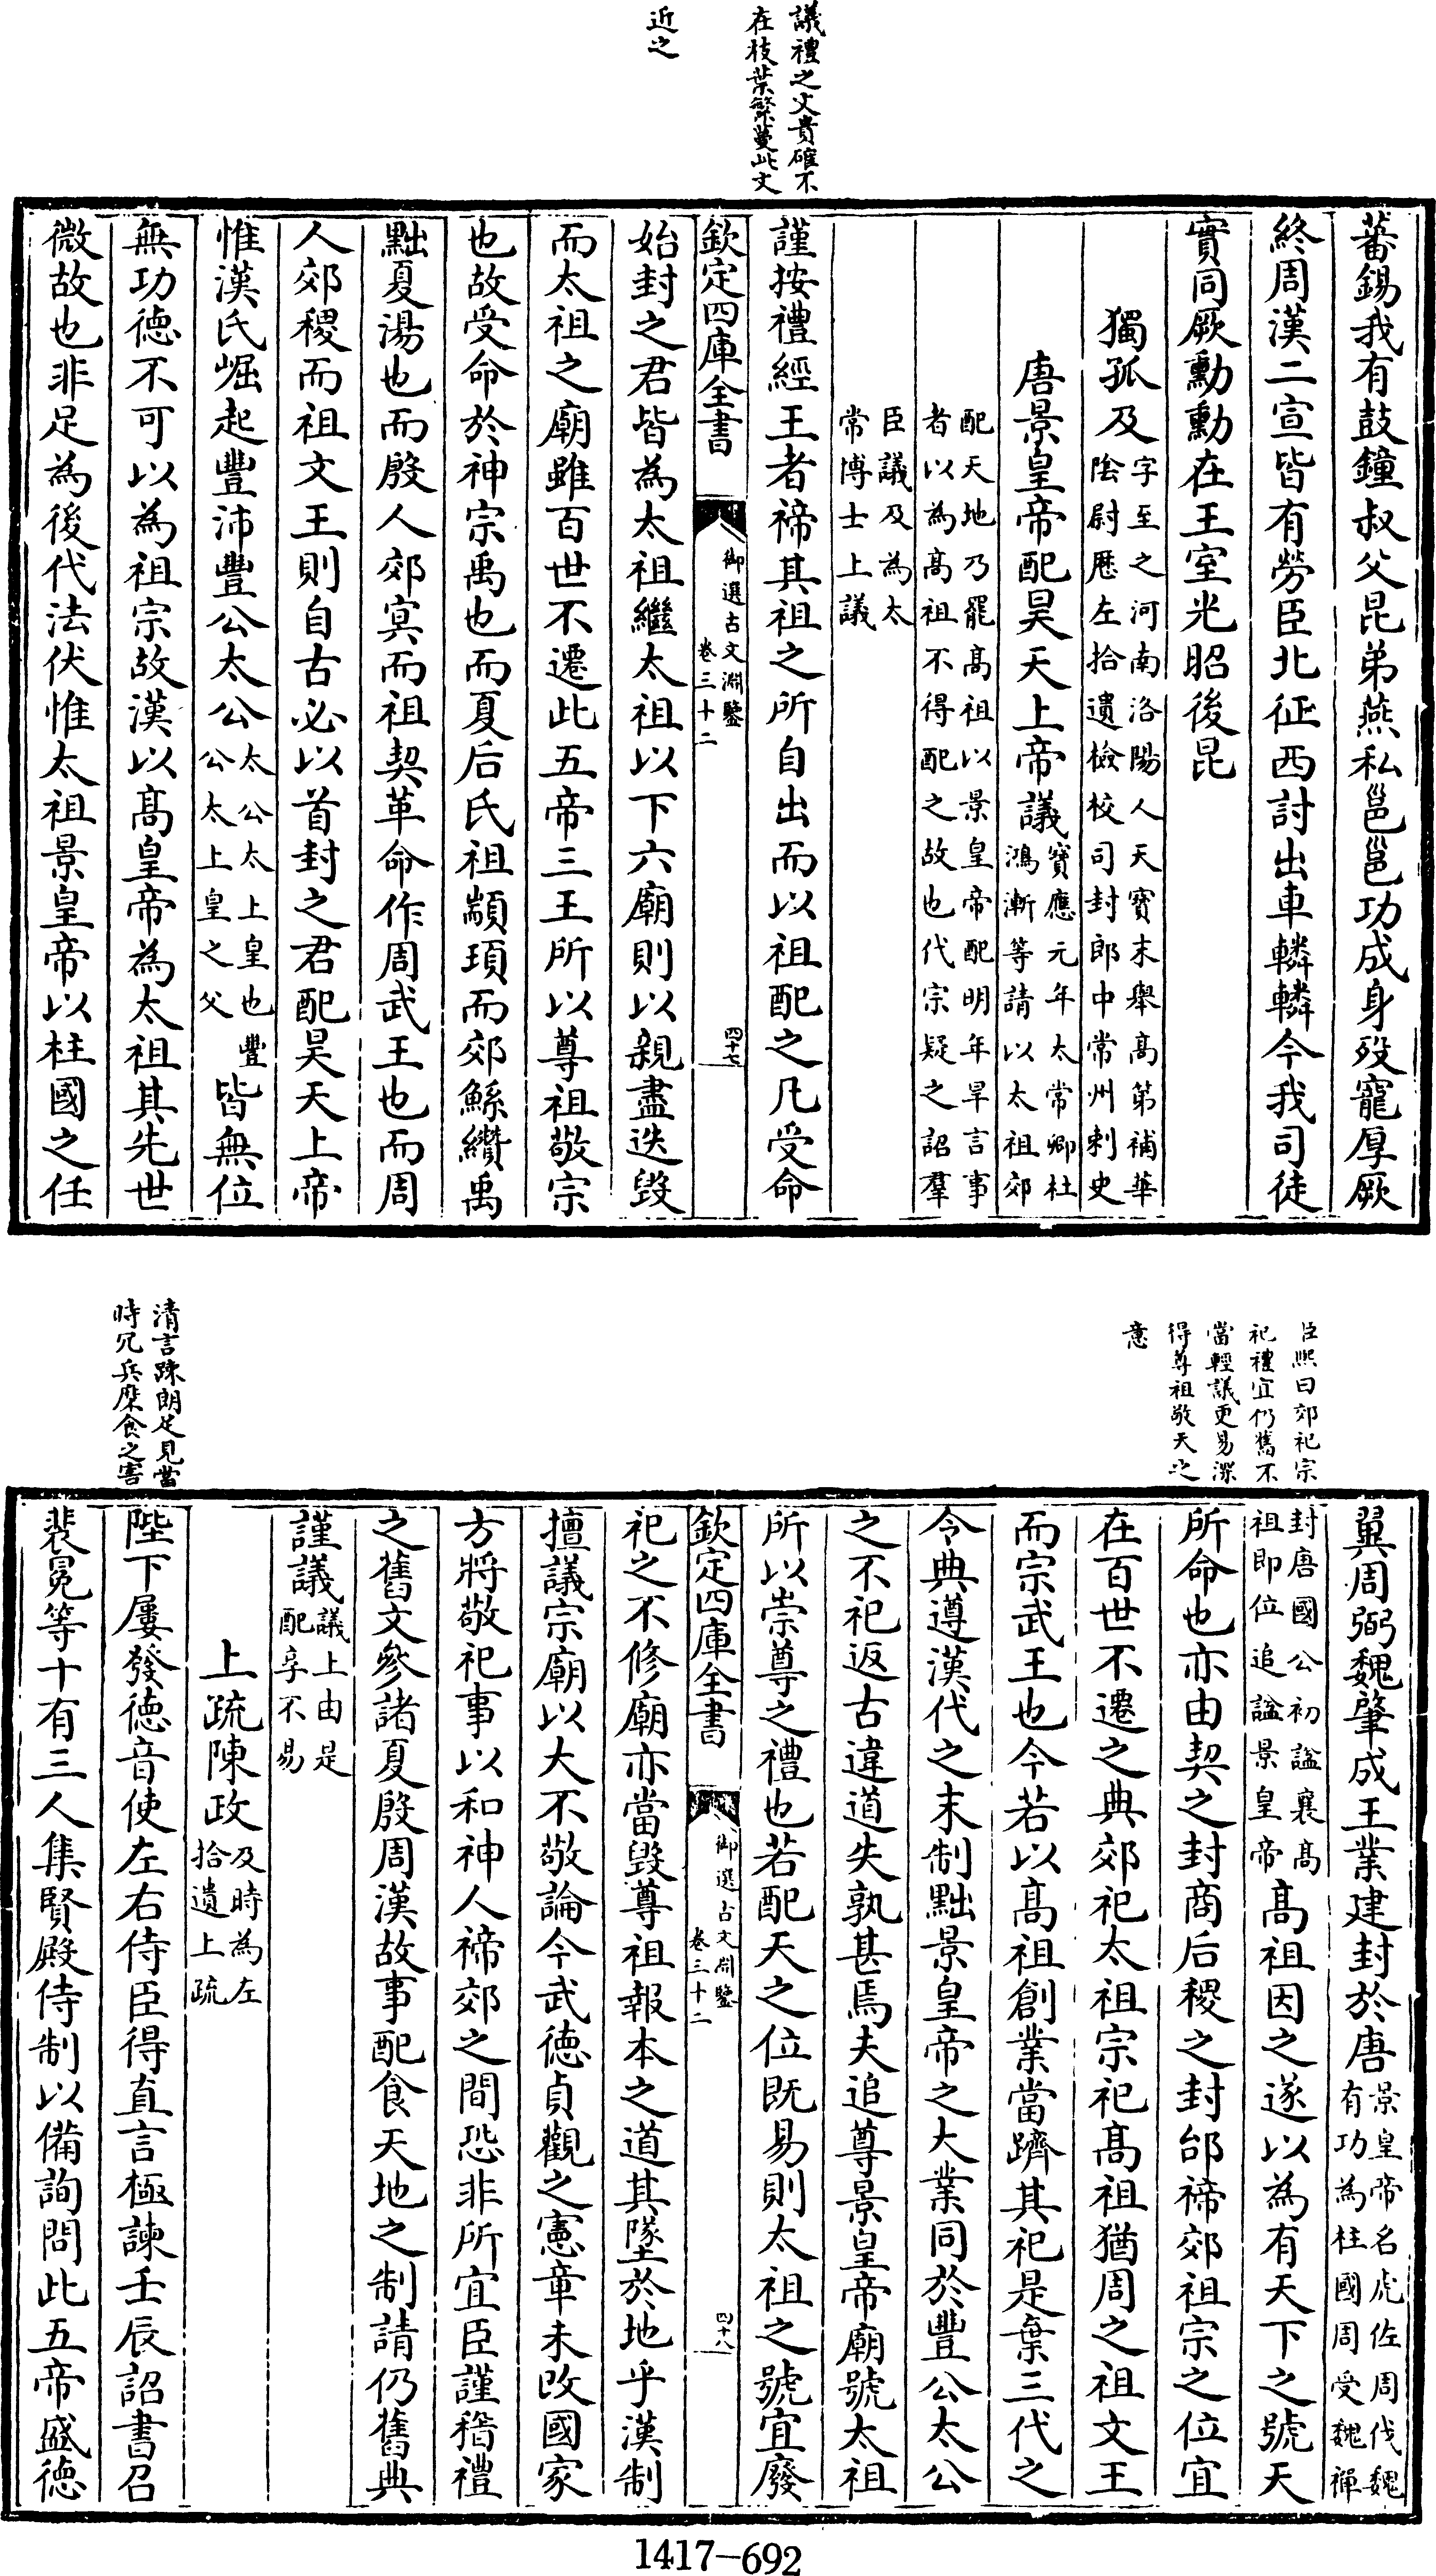 議禮之文貴確不
在枝葉繁蔓此文
近之
蕃錫我有鼓鐘叔父昆弟燕私邕邕功成身歿寵厚厥
終周漢二宣皆有勞臣北征西討出車轔轔今我司徒
實同厥勳勳在王室光昭後昆
獨孤及字至之河南洛陽人天寶末舉高第補華
陰尉歷左拾遺檢校司封郎中常州刺史
唐景皇帝配昊天上帝議寶應元年太常卿杜
鴻漸等請以太祖郊
配天地乃罷高祖以景皇帝配明年旱言事
者以為高祖不得配之故也代宗疑之詔羣
臣議及為太
常博士上議
謹按禮經王者禘其祖之所自出而以祖配之凡受命
欽定四庫全書
御選古文淵鑒
卷三十二
四十七
始封之君皆為太祖繼太祖以下六廟則以親盡迭毀
而太祖之廟雖百世不遷此五帝三王所以尊祖敬宗
也故受命於神宗禹也而夏后氏祖顓頊而郊鯀纘禹
黜夏湯也而殷人郊冥而祖契革命作周武王也而周
人郊稷而祖文王則自古必以首封之君配昊天上帝
惟漢氏崛起豐沛豐公太公太公太上皇也豐
公太上皇之父皆無位
無功德不可以為祖宗故漢以高皇帝為太祖其先世
微故也非足為後代法伏惟太祖景皇帝以柱國之任
臣熙曰郊祀宗
祀禮宜仍舊不
當輕議更易深
得尊祖敬天之
意
翼周弼魏肇成王業建封於唐景皇帝名虎佐周伐魏
有功為柱國周受魏禪
封唐國公初諡襄高
祖即位追諡景皇帝高祖因之遂以為有天下之號天
所命也亦由契之封商后稷之封邰禘郊祖宗之位宜
在百世不遷之典郊祀太祖宗祀高祖猶周之祖文王
而宗武王也今若以高祖創業當躋其祀是棄三代之
令典遵漢代之末制黜景皇帝之大業同於豐公太公
之不祀返古違道失孰甚焉夫追尊景皇帝廟號太祖
所以崇尊之禮也若配天之位既易則太祖之號宜廢
欽定四庫全書
御選古文淵鑒
卷三十二
四十八
祀之不修廟亦當毀尊祖報本之道其墜於地乎漢制
擅議宗廟以大不敬論今武德貞觀之憲章未改國家
方將敬祀事以和神人禘郊之間恐非所宜臣謹稽禮
之舊文參諸夏殷周漢故事配食天地之制請仍舊典
謹議議上由是
配享不易
上疏陳政及時為左
拾遺上疏
清言踈朗足見當
時冗兵糜食之害
陛下屢發德音使左右侍臣得直言極諫壬辰詔書召
裴冕等十有三人集賢殿侍制以備詢問此五帝盛德
1417-692